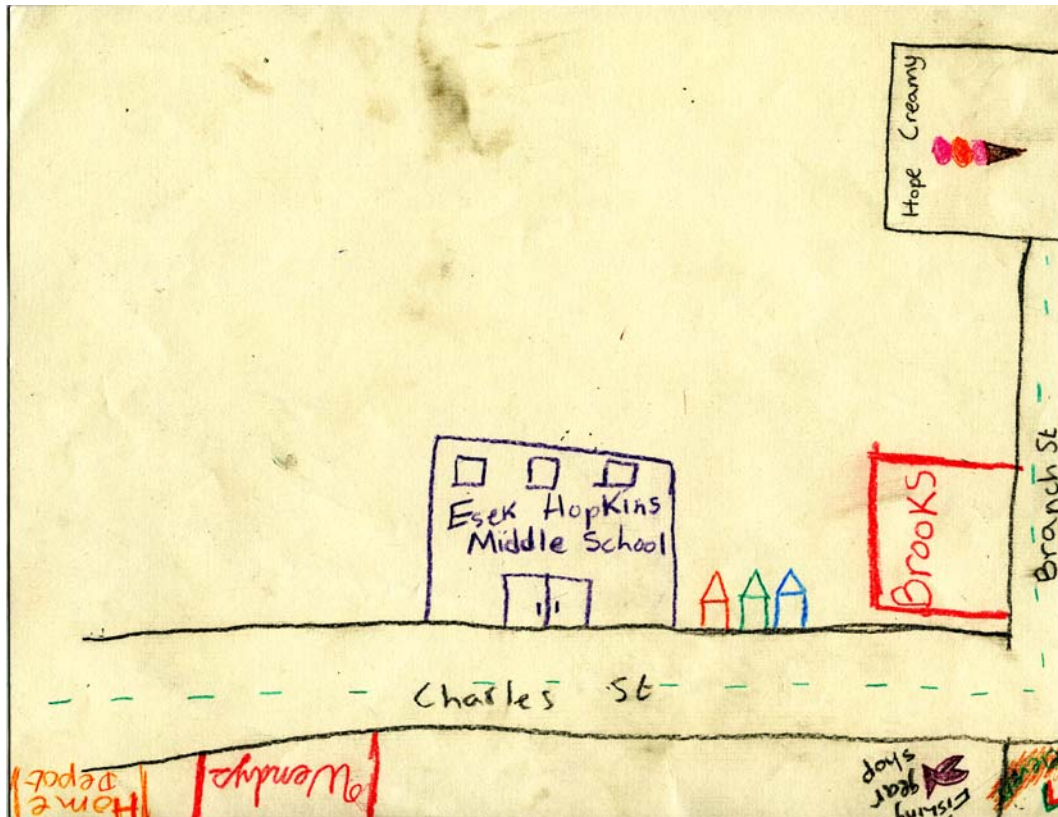 Hope Creamy
Esek Hopkins
Middle School
Brooks
Branch St
Charles St
Home
Depot
Wendys
Fishing
gear
shop